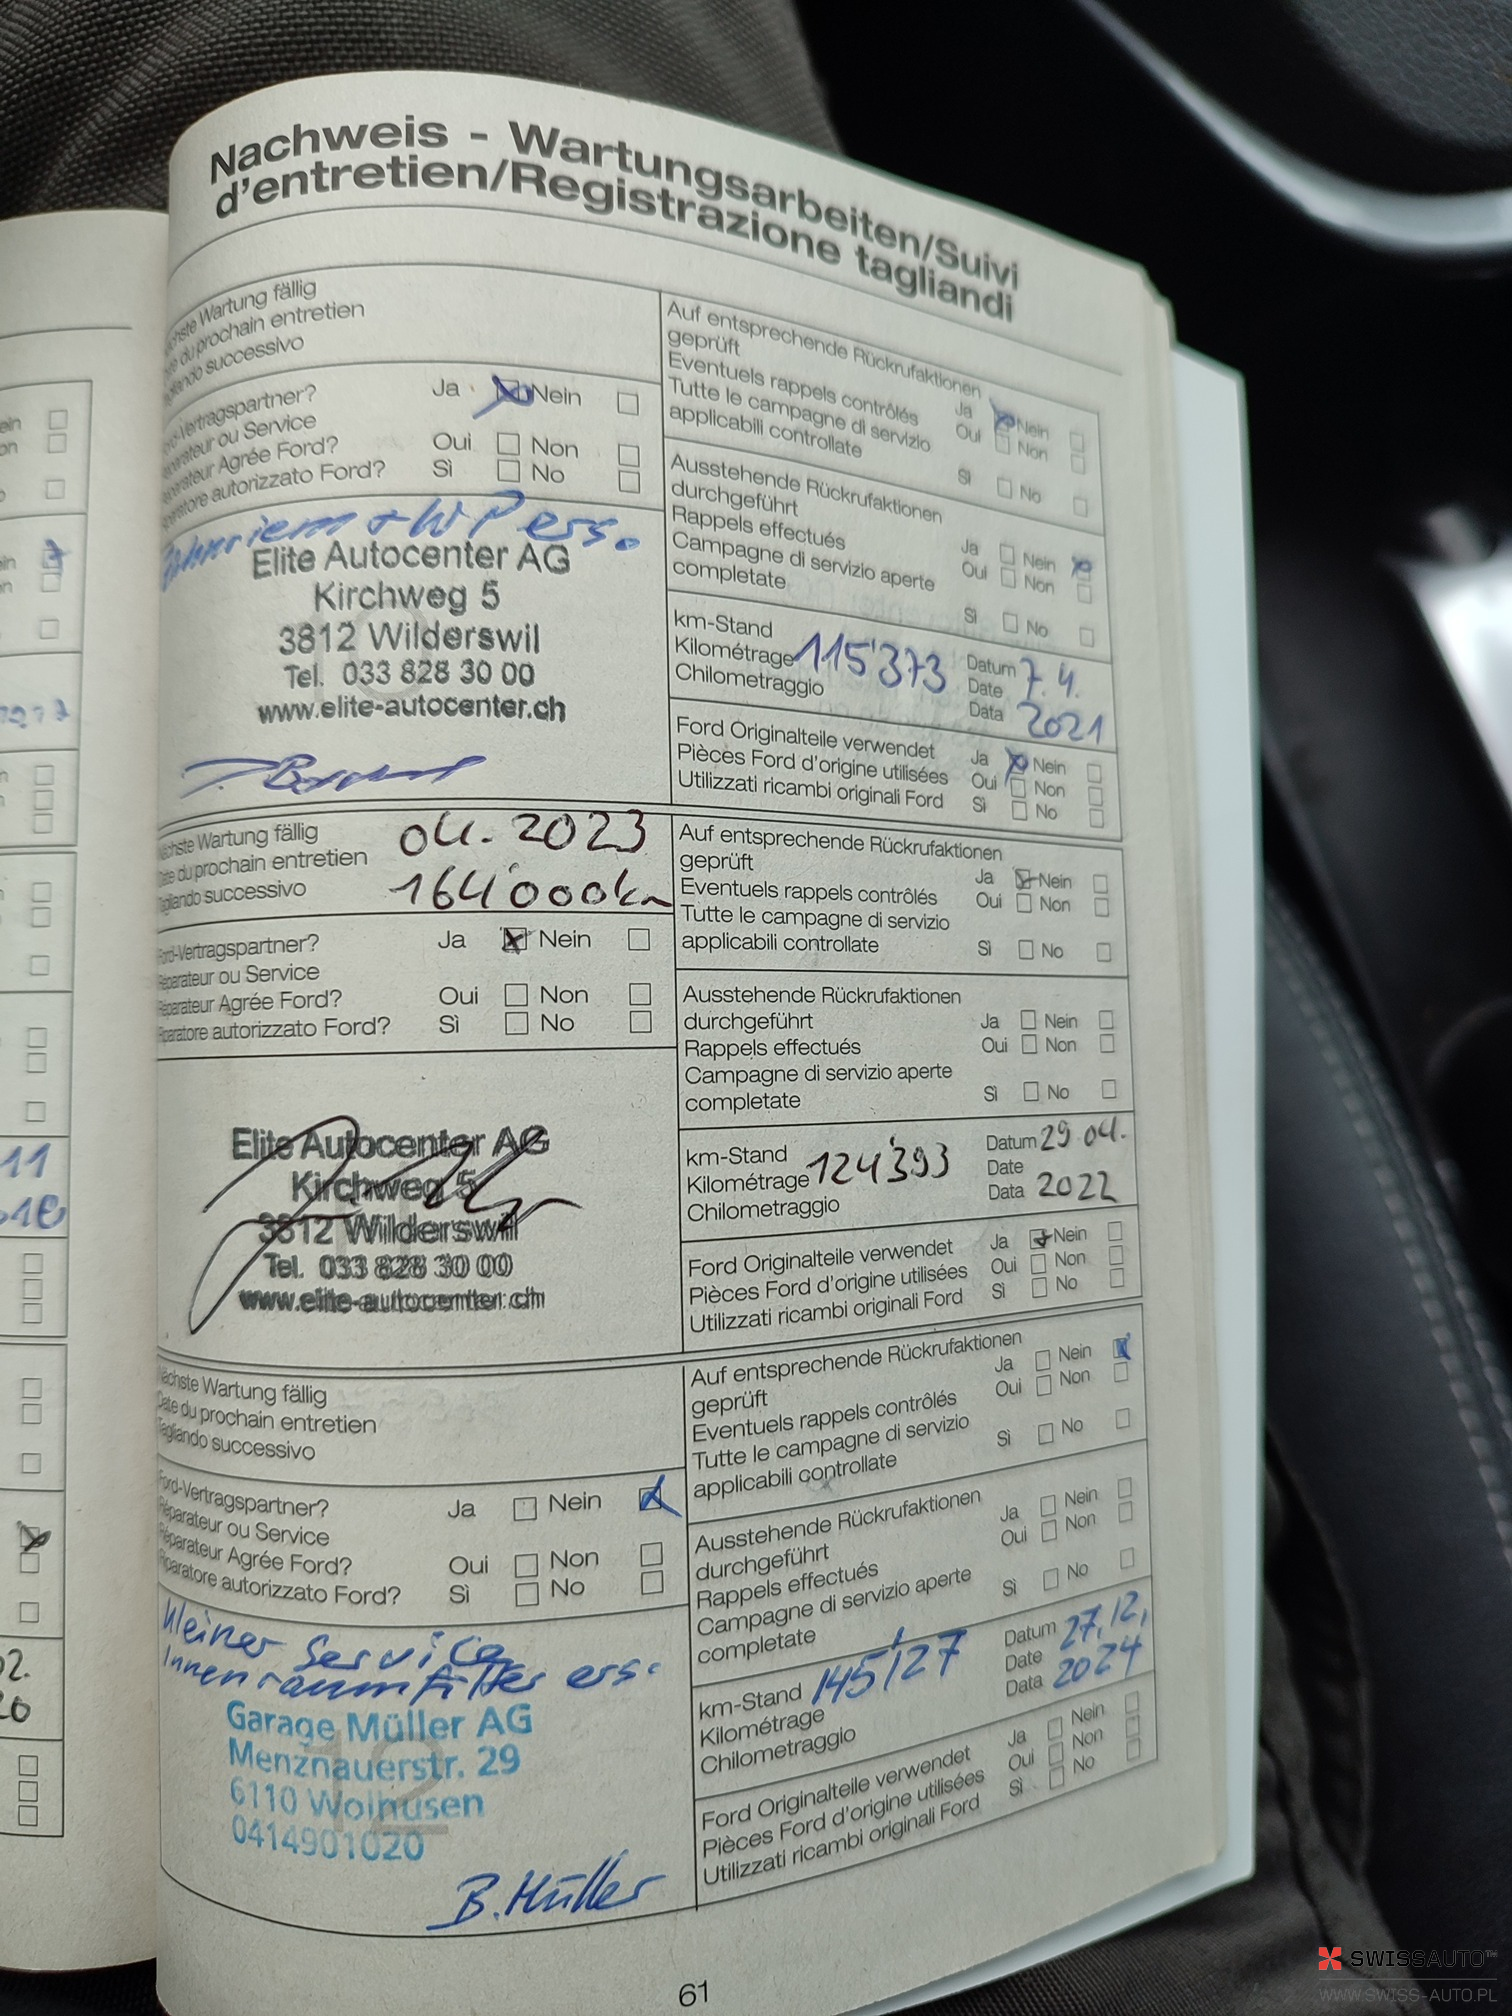 Nachweis - Wartungsarbeiten/Suivi
d'entretien/Registrazione tagliandi
Wartung fällig
du prochain entretien
successivo
Vertragspartner? Ja Nein
ou Service
Agrée Ford? Oui Non
autorizzato Ford? Sì No
+ WP ers.
Elite Autocenter AG
Kirchweg 5
3812 Wilderswil
Tel. 033 828 30 00
www.elite-autocenter.ch
Auf entsprechende Rückrufaktionen
geprüft Ja Nein
Eventuels rappels contrôlés Oui Non
Tutte le campagne di servizio
applicabili controllate Sì No
Ausstehende Rückrufaktionen
durchgeführt Ja Nein
Rappels effectués Oui Non
Campagne di servizio aperte
completate Sì No
km-Stand
Kilométrage 115'373
Chilometraggio
Datum 7.4.
Date
Data 2021
Ford Originalteile verwendet Ja Nein
Pièces Ford d'origine utilisées Oui Non
Utilizzati ricambi originali Ford Sì No
Wartung fällig 04.2023
du prochain entretien
successivo 164'000km
Vertragspartner? Ja Nein
Réparateur ou Service
Réparateur Agrée Ford? Oui Non
autorizzato Ford? Sì No
Elite Autocenter AG
Kirchweg 5
3812 Wilderswil
Tel. 033 828 30 00
www.elite-autocenter.ch
Auf entsprechende Rückrufaktionen
geprüft Ja Nein
Eventuels rappels contrôlés Oui Non
Tutte le campagne di servizio
applicabili controllate Sì No
Ausstehende Rückrufaktionen
durchgeführt Ja Nein
Rappels effectués Oui Non
Campagne di servizio aperte
completate Sì No
km-Stand
Kilométrage 124'393
Chilometraggio
Datum 29.04.
Date
Data 2022
Ford Originalteile verwendet Ja Nein
Pièces Ford d'origine utilisées Oui Non
Utilizzati ricambi originali Ford Sì No
Nächste Wartung fällig
Date du prochain entretien
Tagliando successivo
Ford-Vertragspartner? Ja Nein
Réparateur ou Service
Réparateur Agrée Ford? Oui Non
autorizzato Ford? Sì No
kleiner Service
Innenraumfilter ers.
Garage Müller AG
Menznauerstr. 29
6110 Wolhusen
0414901020
12
B. Müller
Auf entsprechende Rückrufaktionen
geprüft Ja Nein
Eventuels rappels contrôlés Oui Non
Tutte le campagne di servizio
applicabili controllate Sì No
Ausstehende Rückrufaktionen
durchgeführt Ja Nein
Rappels effectués Oui Non
Campagne di servizio aperte
completate Sì No
km-Stand 145'127
Kilométrage
Chilometraggio
Datum 27.12.
Date
Data 2024
Ford Originalteile verwendet Ja Nein
Pièces Ford d'origine utilisées Oui Non
Utilizzati ricambi originali Ford Sì No
61
SWISSAUTO™
WWW.SWISS-AUTO.PL